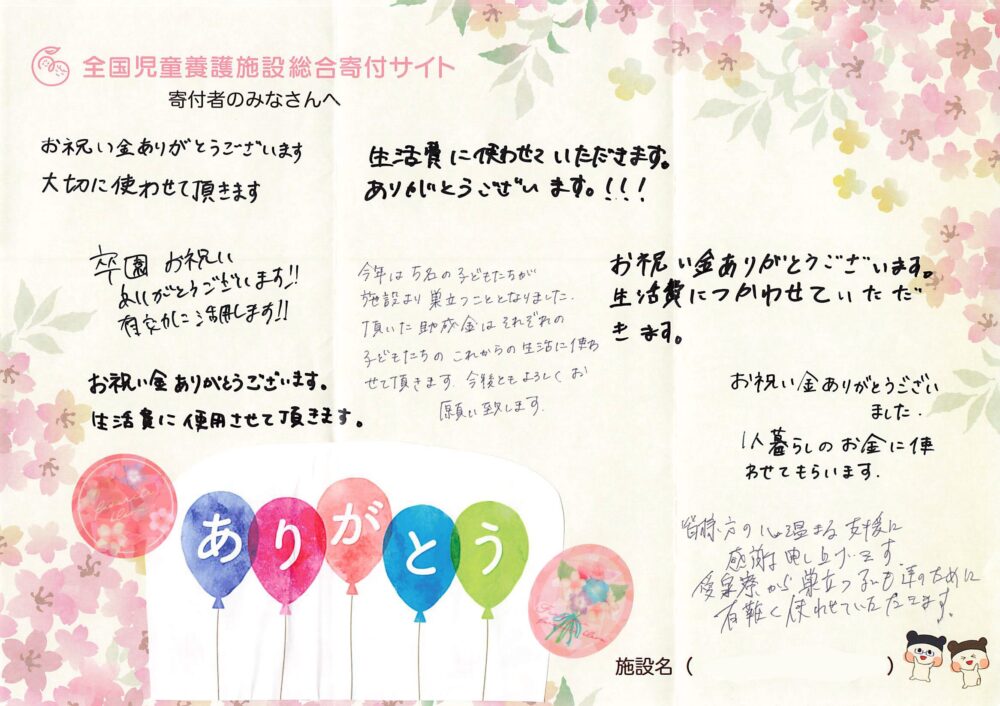 全国児童養護施設総合寄付サイト
寄付者のみなさんへ
お祝い金ありがとうございます
大切に使わせて頂きます
生活費に使わせていただきます。
ありがとうございます。!!!
卒園 お祝い
ありがとうございます!!
有効に活用します!!
今年は5名の子どもたちが
施設より巣立つこととなりました.
頂いた助成金はそれぞれの
子どもたちの これからの生活に使わ
せて頂きます. 今後ともよろしくお
願い致します.
お祝い金ありがとうございます。
生活費につかわせていただ
きます。
お祝い金ありがとうございます。
生活費に使用させて頂きます。
お祝い金ありがとうござい
ました.
1人暮らしのお金に使
わせてもらいます.
ありがとう
皆様方の心温まる支援に
感謝申し上げます.
から巣立つ子ども達のために
有難く使わせていただきます.
施設名 ( )